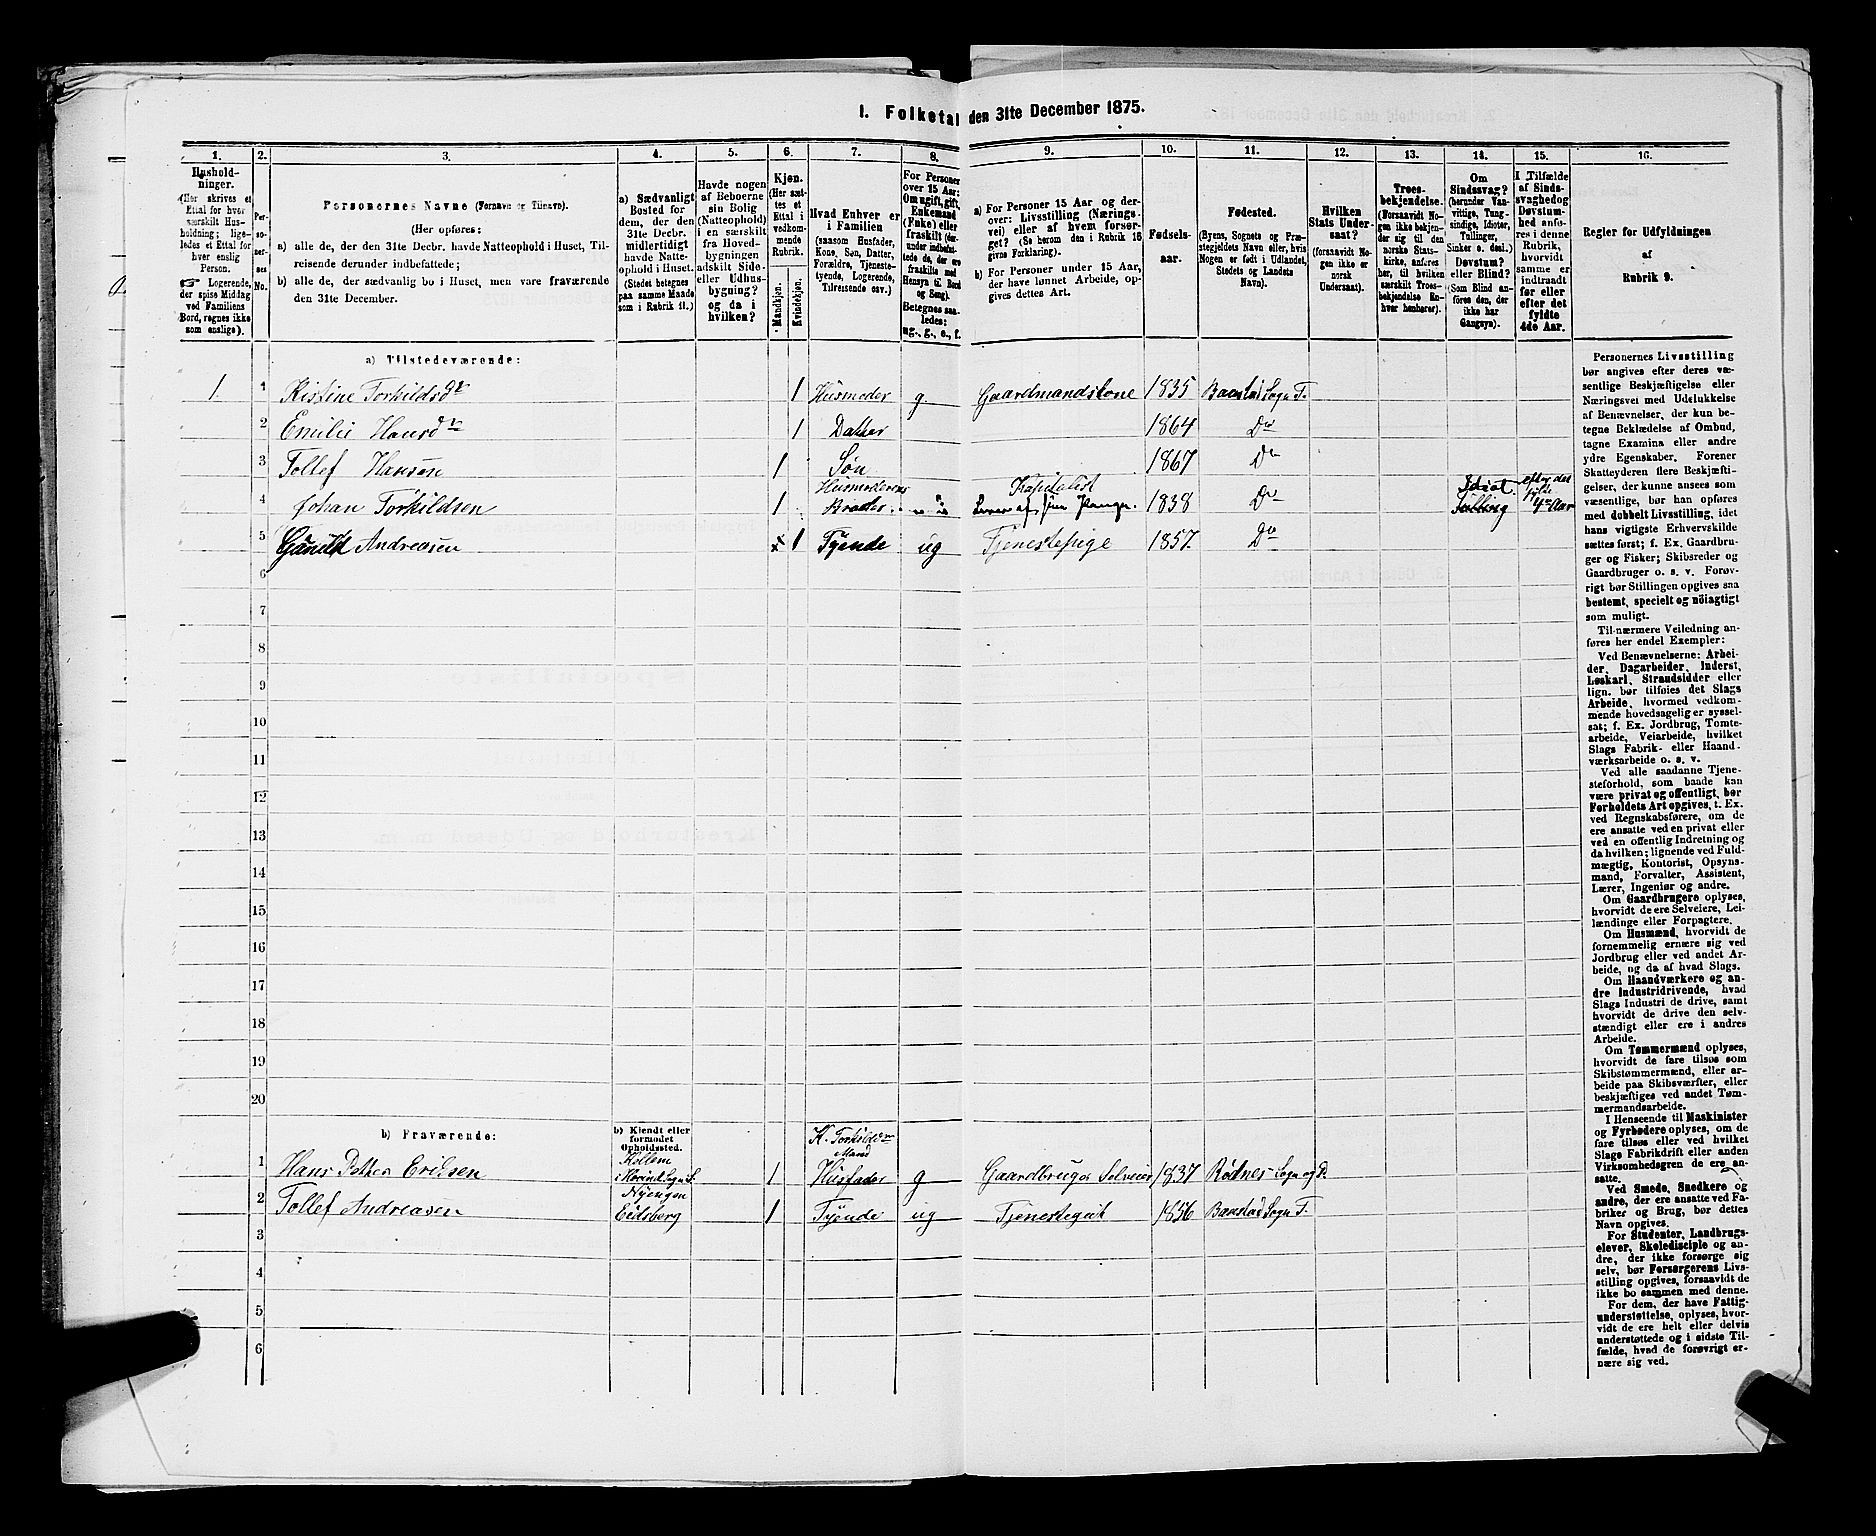 1. Folketal den 31te December 1875.
1. 2. 3. 4. 5. 6. 7. 8. 9. 10. 11. 12. 13. 14. 15. 16.
Hushold-
ninger.
(Her skrives et
Ettal for hver
særskilt Hus-
holdning; lige-
ledes et Ettal for
hver enslig
Person.
☞ Logerende,
der spise Middag
ved Familiens
Bord, regnes ikke
som enslige).
Per-
so-
ner-
nes
No.
Personernes Navne (Fornavn og Tilnavn).
(Her opføres:
a) alle de, der den 31te Decbr. havde Natteophold i Huset, Til-
reisende derunder indbefattede;
b) alle de, der sædvanlig bo i Huset, men vare fraværende
den 31te December.
a) Sædvanligt
Bosted for
dem, der den
31te Decbr.
midlertidigt
havde Natte-
ophold i Huset.
(Stedet betegnes
paa samme Maade
som i Rubrik 11.)
Havde nogen
af Beboerne
sin Bolig
(Natteophold)
i en særskilt
fra Hoved-
bygningen
adskilt Side-
eller Udhus-
bygning?
og da i
hvilken?
Kjøn.
(Her sæt-
tes et
Ettal i
vedkom-
mende
Rubrik.
Mandkjøn.
Kvindekjøn.
Hvad Enhver er
i Familien
(saasom Husfader,
Kone, Søn, Datter,
Forældre, Tjeneste-
tyende, Logerende,
Tilreisende osv.)
For Personer
over 15 Aar:
Om ugift, gift,
Enkemand
(Enke) eller
fraskilt (der-
under indbefat-
tede de, der ere
fraskilte med
Hensyn til Bord
og Seng).
Betegnes saa-
ledes:
ug., g., e., f.
a) For Personer 15 Aar og der-
over: Livsstilling (Nærings-
vei) eller af hvem forsør-
get? (Se herom den i Rubrik 16
givne Forklaring).
b) For Personer under 15 Aar,
der have lønnet Arbeide, op-
gives dettes Art.
Fødsels-
aar.
Fødested.
(Byens, Sognets og Præ-
stegjeldets Navn eller, hvis
Nogen er født i Udlandet,
Stedets og Landets
Navn).
Hvilken
Stats Under-
saat?
(forsaavidt No-
gen ikke er
norsk
Undersaat).
Troes-
bekjendelse.
(Forsaavidt No-
gen ikke bekjen-
der sig til den
norske Stats-
kirke, anføres
her, til hvilken
særskilt Troes-
bekjendelse En-
hver henhører).
Om
Sindssvag?
(herunder Van-
vittige, Tung-
sindige, Idioter,
Tullinger,
Sinker o. desl.)
Døvstum?
eller Blind?
(Som Blind an-
føres den, der
ikke har
Gangsyn).
I Tilfælde
af Sinds-
svaghed og
Døvstum-
hed anfø-
res i denne
Rubrik,
hvorvidt
samme er
indtraadt
før eller
efter det
fyldte
4de Aar.
Regler for Udfyldningen
af
Rubrik 9.
a) Tilstedeværende:
1 1 Kristine Torkildsdr 1 Husmoder g Gaardmandskone 1835 Baastad Sogn T.
2 Emilie Hansdr 1 Datter 1864 Do
3 Tollef Hansen 1 Søn 1867 Do
Husmoderens Kapitalist Idiot. efter det fylde
4 Johan Torkildsen 1 Broder 1838 Do Tulling 4de Aar
5 Andreasen 1 Tyende ug Tjenestepige 1857. Do
6
7
8
9
10
11
12
13
14
15
16
17
18
19
20
b) Fraværende:
b) Kjendt eller
formodet
Opholdssted.
K. Torkildsdr
Mand
1 Hans Petter Erilsen 1 Husfader g Gaardbruger Selveier 1837 Rødnes Sogn og P.
2 Tollef Andreasen Eidsberg 1 Tyende ug Tjenestegut 1856 Baastad Sogn T.
3
4
5
6
Personernes Livsstilling
bør angives efter deres væ-
sentlige Beskjæftigelse eller
Næringsvei med Udelukkelse
af Benævnelser, der kun be-
tegne Beklædelse af Ombud,
tagne Examina eller andre
ydre Egenskaber. Forener
Skatteyderen flere Beskjæfti-
gelser, der kunne ansees som
væsentlige, bør han opføres
med dobbelt Livsstilling, idet
hans vigtigste Erhvervskilde
sættes først; f. Ex. Gaardbru-
ger og Fisker; Skibsreder og
Gaardbruger o. s. v. Forøv-
rigt bør Stillingen opgives saa
bestemt, specielt og nöiagtigt
som muligt.
Til nærmere Veiledning an-
føres her endel Exempler:
Ved Benævnelserne: Arbei-
der, Dagarbeider, Inderst,
Løskarl, Strandsidder eller
lign. bør tilføies det Slags
Arbeide, hvormed vedkom-
mende hovedsagelig er syssel-
sat; f. Ex. Jordbrug, Tomte-
arbeide, Veiarbeide, hvilket
Slags Fabrik- eller Haand-
værksarbeide o. s. v.
Ved alle saadanne Tjene-
steforhold, som baade kan
være privat og offentligt, bør
Forholdets Art opgives, t. Ex.
ved Regnskabsførere, om de
ere ansatte ved en privat eller
ved en offentlig Indretning og
da hvilken; lignende ved Fuld-
mægtig, Kontorist, Opsyns-
mand, Forvalter, Assistent,
Lærer, Ingeniør og andre.
Om Gaardbrugere oplyses,
hvorvidt de ere Selveiere, Lei-
lændinge eller Forpagtere.
Om Husmænd, hvorvidt de
fornemmelig ernære sig ved
Jordbrug eller ved andet Ar-
beide, og da af hvad Slags.
Om Haandværkere og an-
dre Industridrivende, hvad
Slags Industri de drive, samt
hvorvidt de drive den selv-
stændigt eller ere i andres
Arbeide.
Om Tømmermænd oplyses,
hvorvidt de fare tilsøs som
Skibstømmermænd, eller ar-
beide paa Skibsværfter, eller
beskjæftiges ved andet Tøm-
mermandsarbeide.
I Henseende til Maskinister
og Fyrbødere oplyses, om de
fare tilsøs eller ved hvilket
Slags Fabrikdrift eller anden
Virksomhedsgren de ere an-
satte.
Ved Smede, Snedkere og
andre, der ere ansatte ved Fa-
briker og Brug, bør dettes
Navn opgives.
For Studenter, Landbrugs-
elever, Skoledisciple og an-
dre, der ikke forsørge sig
selv, bør Forsørgerens Livs-
stilling opgives, forsaavidt de
ikke bo sammen med denne.
For dem, der have Fattig-
understøttelse, oplyses, hvor-
vidt de ere helt eller delvis
understøttede og i sidste Til-
fælde, hvad de forøvrigt er-
nære sig ved.